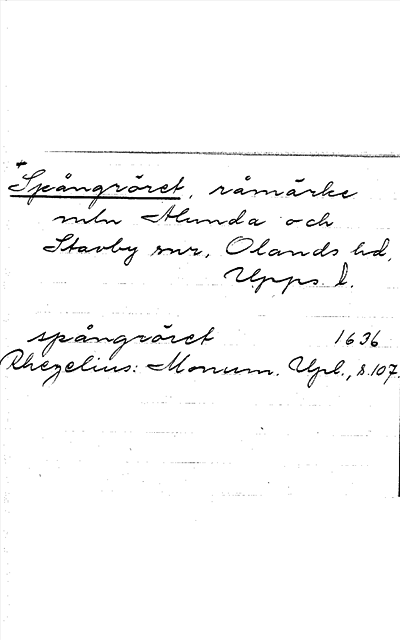 +
Spångröret, råmärke
mln Alunda och
Stavby snr, Olands hd,
Upps. l.
spångröret 1636
Rhezelius: Monum. Upl., s.107.